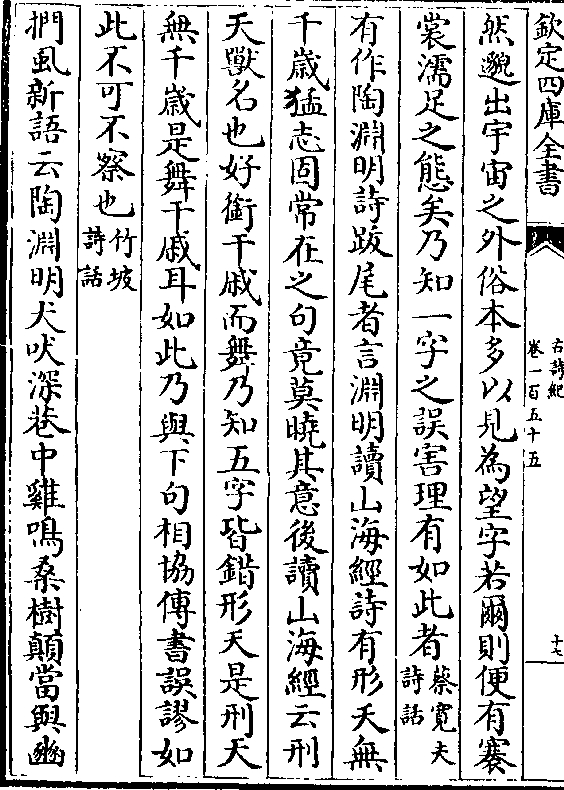 欽定四庫全書
古詩紀
卷一百五十五
十七
然邈出宇宙之外俗本多以見為望字若爾則便有褰
裳濡足之態矣乃知一字之誤害理有如此者蔡寛夫詩話
有作陶淵明詩跋尾者言淵明讀山海經詩有形夭無
千歳猛志固常在之句竟莫曉其意後讀山海經云刑
天獸名也好銜干戚而舞乃知五字皆錯形夭是刑天
無千歳是舞干戚耳如此乃與下句相協傳書誤謬如
此不可不察也竹坡詩話
捫風新語云陶淵明犬吠深巷中雞鳴桑樹顛當與豳